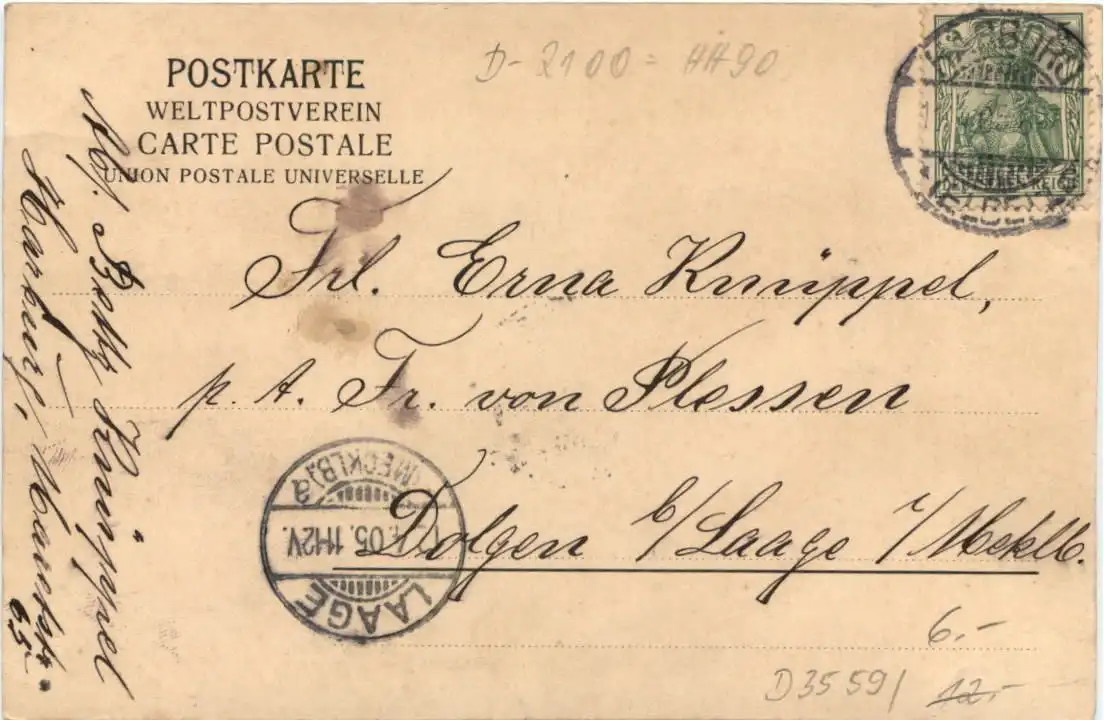 D-2100 = HH90
POSTKARTE
WELTPOSTVEREIN
CARTE POSTALE
UNION POSTALE UNIVERSELLE
HARBURG
(ELBE)
DEUTSCHES REICH
Frl. Erna Knüppel,
p. A. Fr. von Plessen
Dolgen b/Laage i/Meklb.
LAAGE
05. 11-12V.
(MECKLB.)
a
Knüppel
Harburg,
65
6.-
D3559/ 12.-